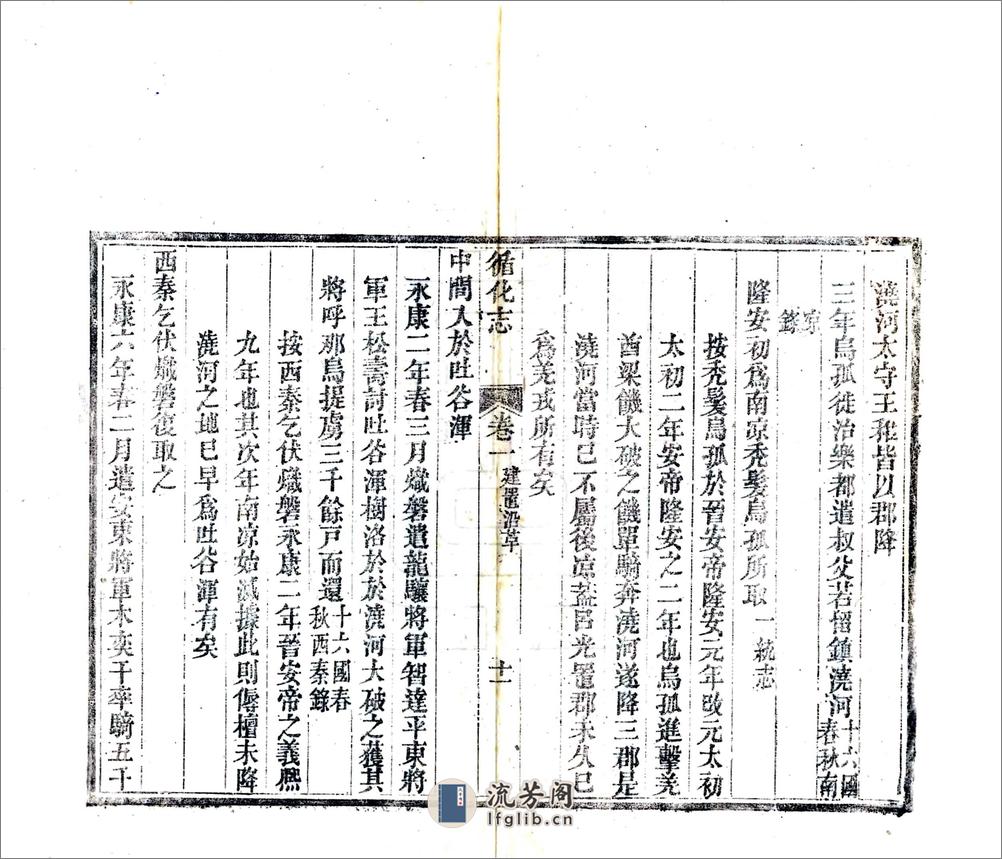 澆河太守王稚皆以郡降
三年烏孤徙治樂都遣叔父若留鎮澆河十六國春秋南
涼錄
隆安初爲南涼禿髮烏孤所取一統志
按禿髮烏孤於晉安帝隆安元年改元太初
太初二年安帝隆安之二年也烏孤進擊羌
酋梁饑大破之饑單騎奔澆河遂降三郡是
澆河當時已不屬後凉蓋呂光置郡未久已
爲羌戎所有矣
循化志
卷一
建置沿革
十一
中間入於吐谷渾
永康二年春三月熾磐遣龍驤將軍智達平東將
軍王松壽討吐谷渾樹洛於於澆河大破之獲其
將呼那烏提虜三千餘戸而還十六國春秋西秦錄
按西秦乞伏熾磐永康二年晉安帝之義熈
九年也其次年南凉始滅據此則傉檀未降
澆河之地已早爲吐谷渾有矣
西秦乞伏熾磐復取之
永康六年春二月遣安東將軍木奕干率騎五千
流芳阁
lfglib.cn